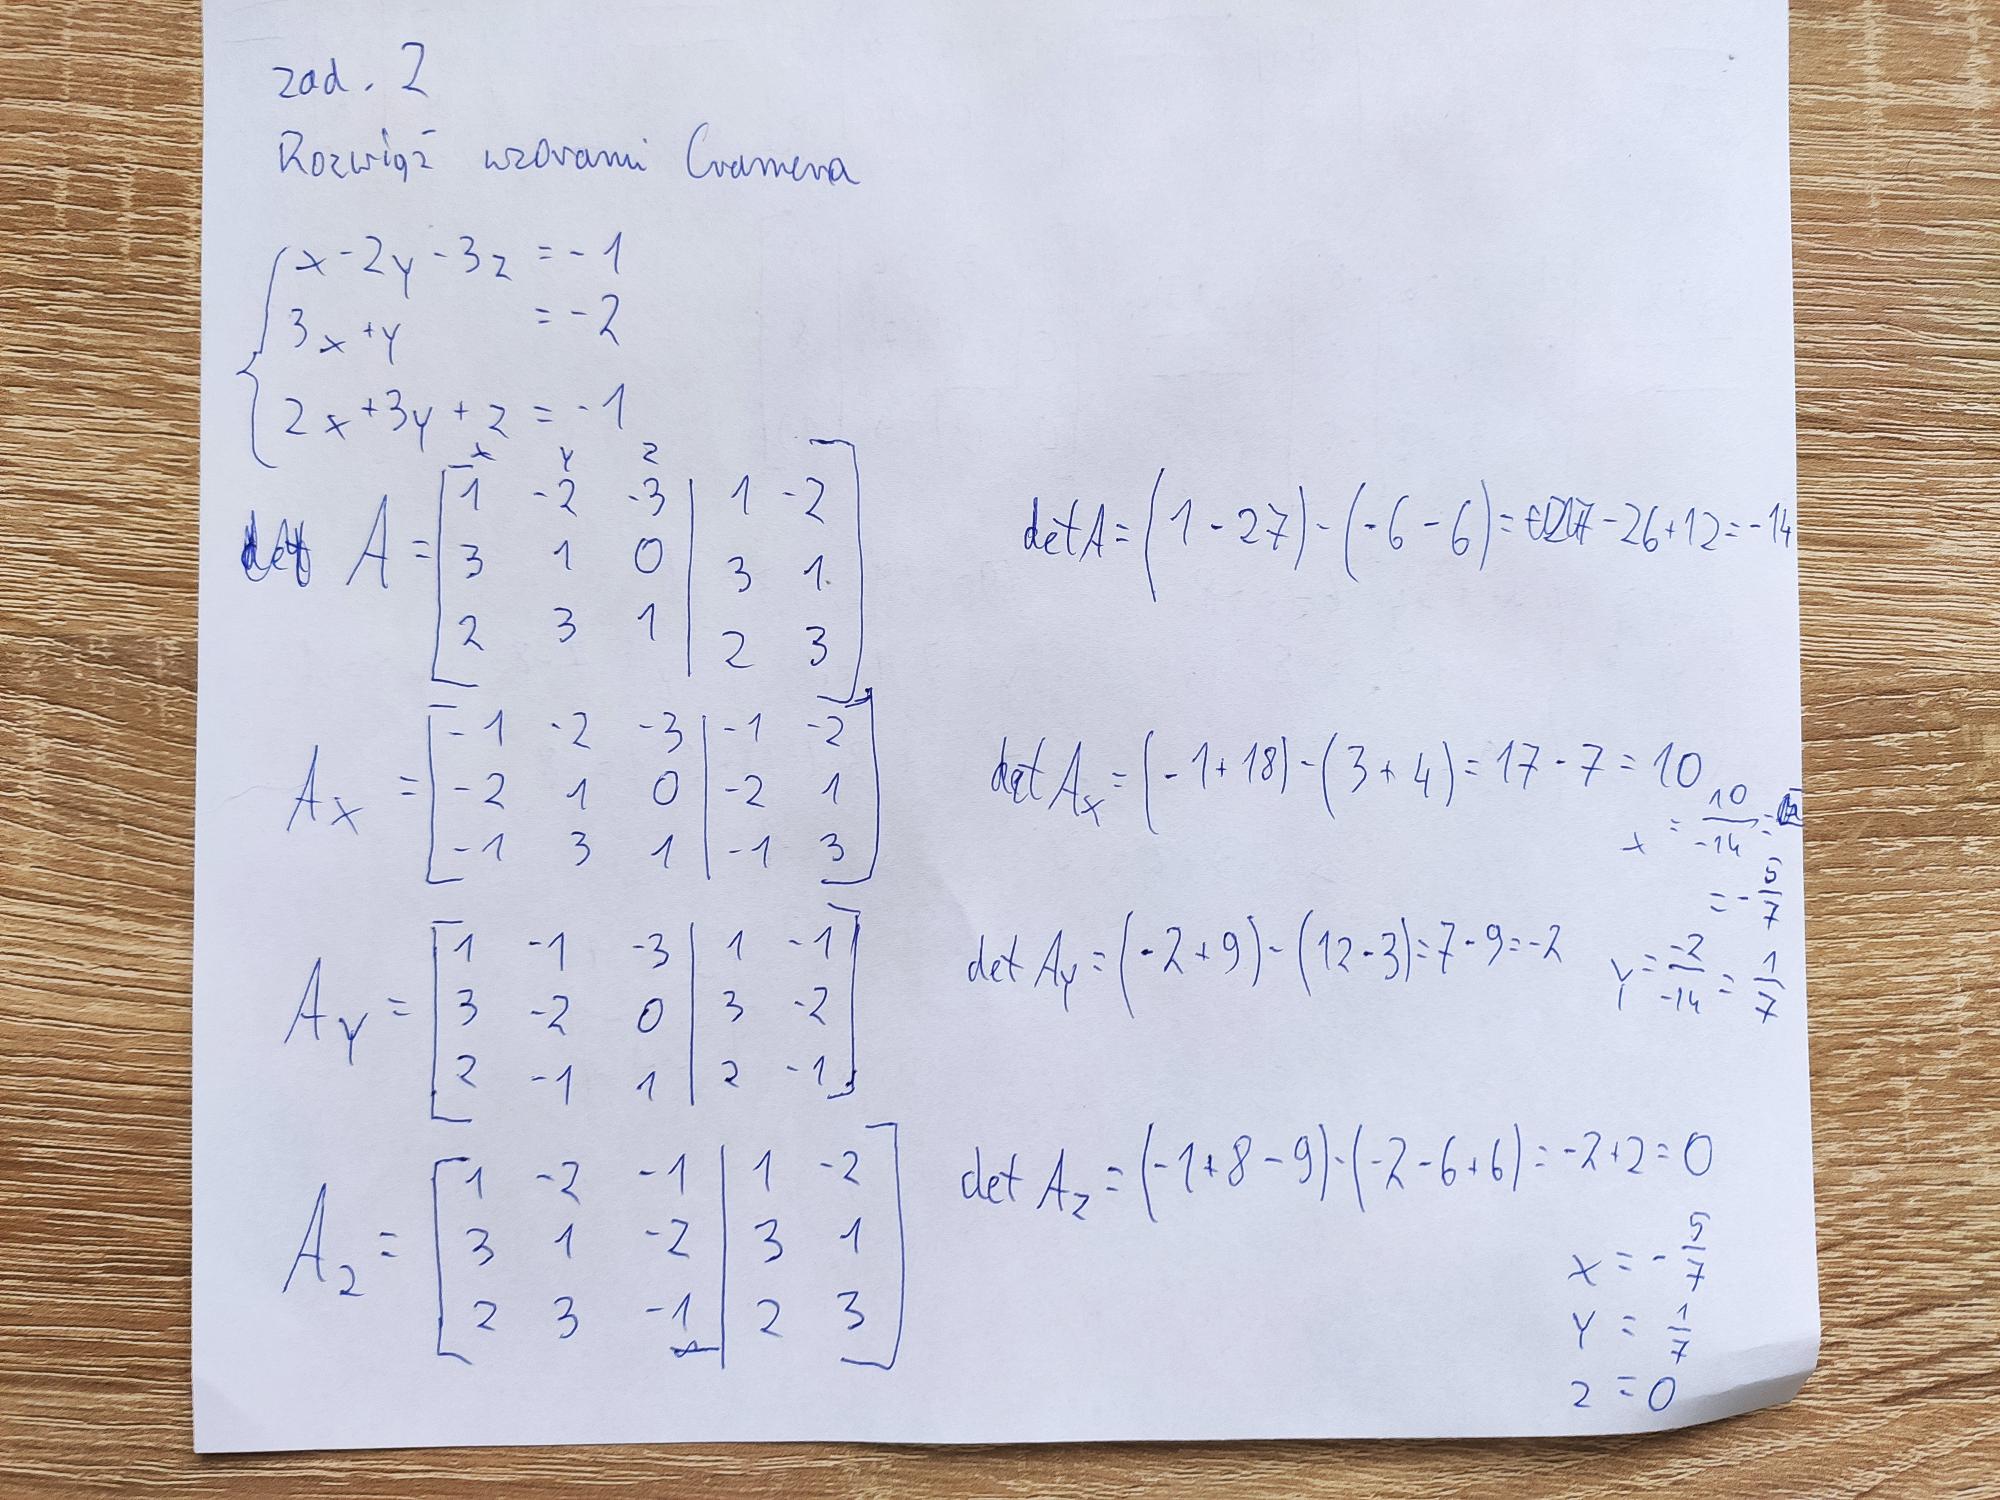 zad. 2
Rozwiąż wzorami Cramera
x - 2y - 3z = -1
3x + y = -2
2x + 3y + z = -1
x y z
A = [ 1 -2 -3 | 1 -2 ]
3 1 0 | 3 1
2 3 1 | 2 3
det A = (1 - 27) - (-6 - 6) = -26 + 12 = -14
Ax = [ -1 -2 -3 | -1 -2 ]
-2 1 0 | -2 1
-1 3 1 | -1 3
det Ax = (-1 + 18) - (3 + 4) = 17 - 7 = 10
x = 10/-14 =
= -5/7
Ay = [ 1 -1 -3 | 1 -1 ]
3 -2 0 | 3 -2
2 -1 1 | 2 -1
det Ay = (-2 + 9) - (12 - 3) = 7 - 9 = -2
y = -2/-14 = 1/7
Az = [ 1 -2 -1 | 1 -2 ]
3 1 -2 | 3 1
2 3 -1 | 2 3
det Az = (-1 + 8 - 9) - (-2 - 6 + 6) = -2 + 2 = 0
x = -5/7
y = 1/7
z = 0